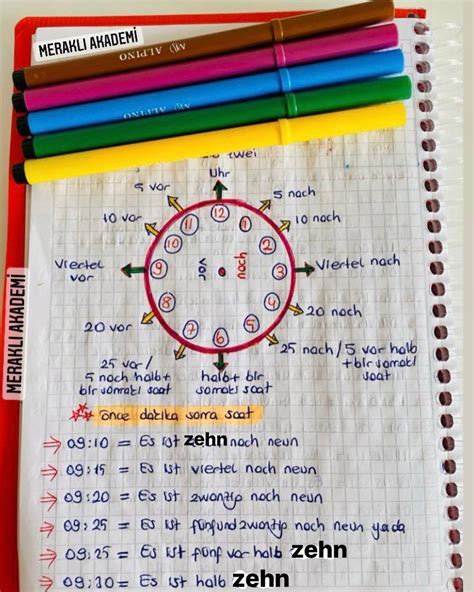 MERAKLI AKADEMİ
MERAKLI AKADEMİ
ALPINO
ALPINO
zwei
Uhr
5 vor
5 nach
10 vor
10 nach
12
11
1
10
2
Viertel vor
9
vor
nach
3
Viertel nach
8
4
7
5
6
20 vor
20 nach
25 vor /
5 nach halb +
bir sonraki saat
halb + bir
sonraki saat
25 nach / 5 vor halb
+ bir sonraki
saat
önce dakika sonra saat
09:10 = Es ist zehn nach neun
09:15 = Es ist viertel nach neun
09:20 = Es ist zwanzig nach neun
09:25 = Es ist fünfundzwanzig nach neun yada
09:25 = Es ist fünf vor halb zehn
09:30 = Es ist halb zehn